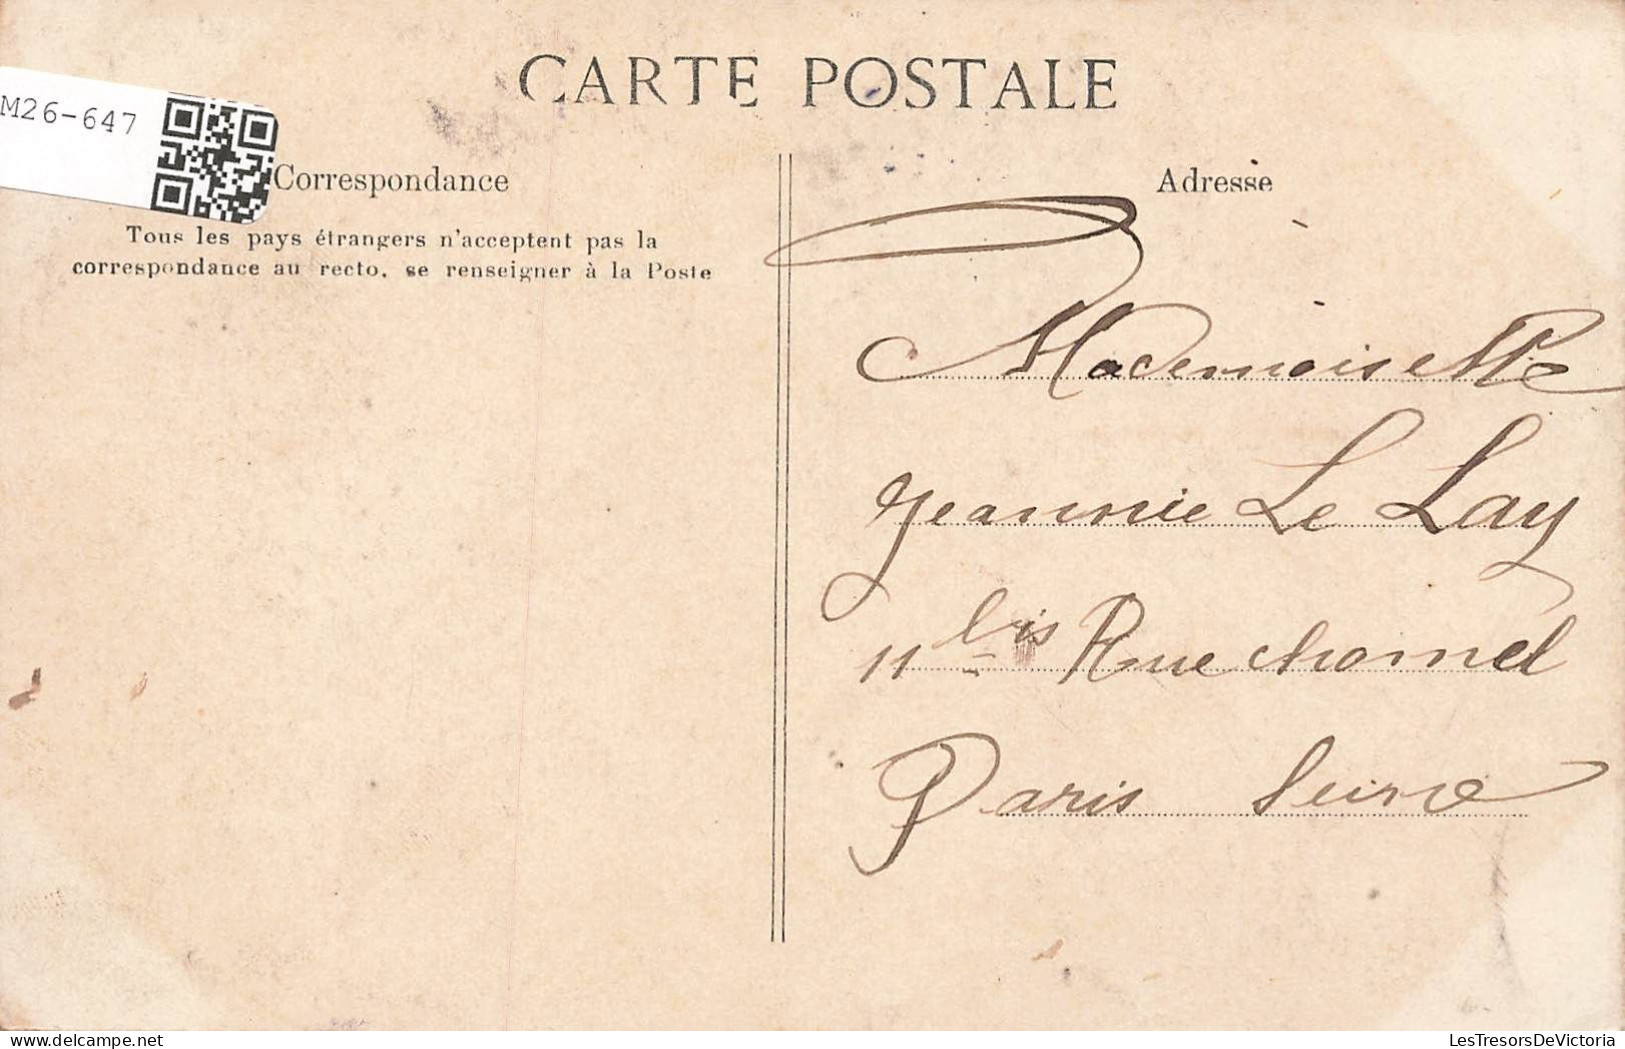 CARTE POSTALE
M26-647
Correspondance
Tous les pays étrangers n'acceptent pas la
correspondance au recto, se renseigner à la Poste
Adresse
Mademoiselle
Jeannie Le Lay
11 bis Rue chomel
Paris Seine
delcampe.net
LesTresorsDeVictoria